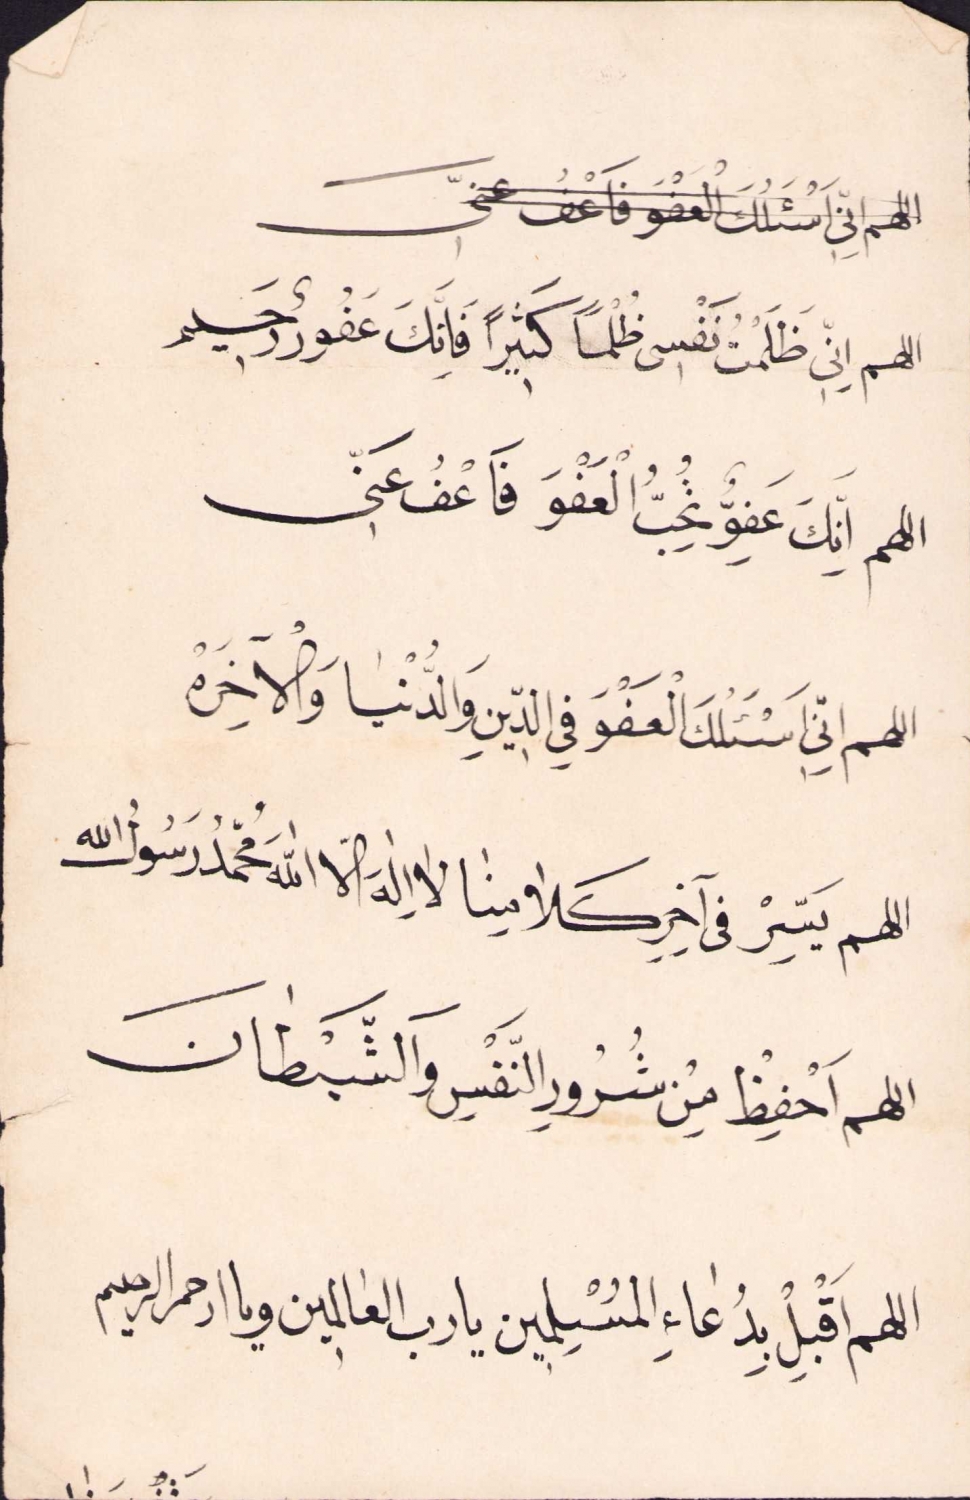 اللهم اِنِّى اَسْئَلُكَ الْعَفْوَ فَاَعْفُ عَنِّى
اللهم اِنِّى ظَلَمْتُ نَفْسِى ظُلْمًا كَثِيرًا فَاِنَّكَ غَفُورٌ رَحِيم
اللهم اِنَّكَ عَفِوٌّ تُحِبُّ الْعَفْوَ فَاَعْفُ عَنِّى
اللهم اِنِّى اَسْئَلُكَ الْعَفْوَ فِى الدِّينِ وَالدُّنْيَا وَالْآخِرَهْ
اللهم يَسِّرْ فى آخِرِ كَلامِنا لا اِلٰهَ اِلّا اللهُ مُحَمَّدُ رَسُولُ الله
اللهم اَحْفِظْ مِنْ شُرُورِ النَّفْسِ وَالشَّيْطَان
اللهم اَقْبِلْ بِدُعَاءِ الْمُسْلِمِين يا رب العالمين ويا ارحم الرحيم